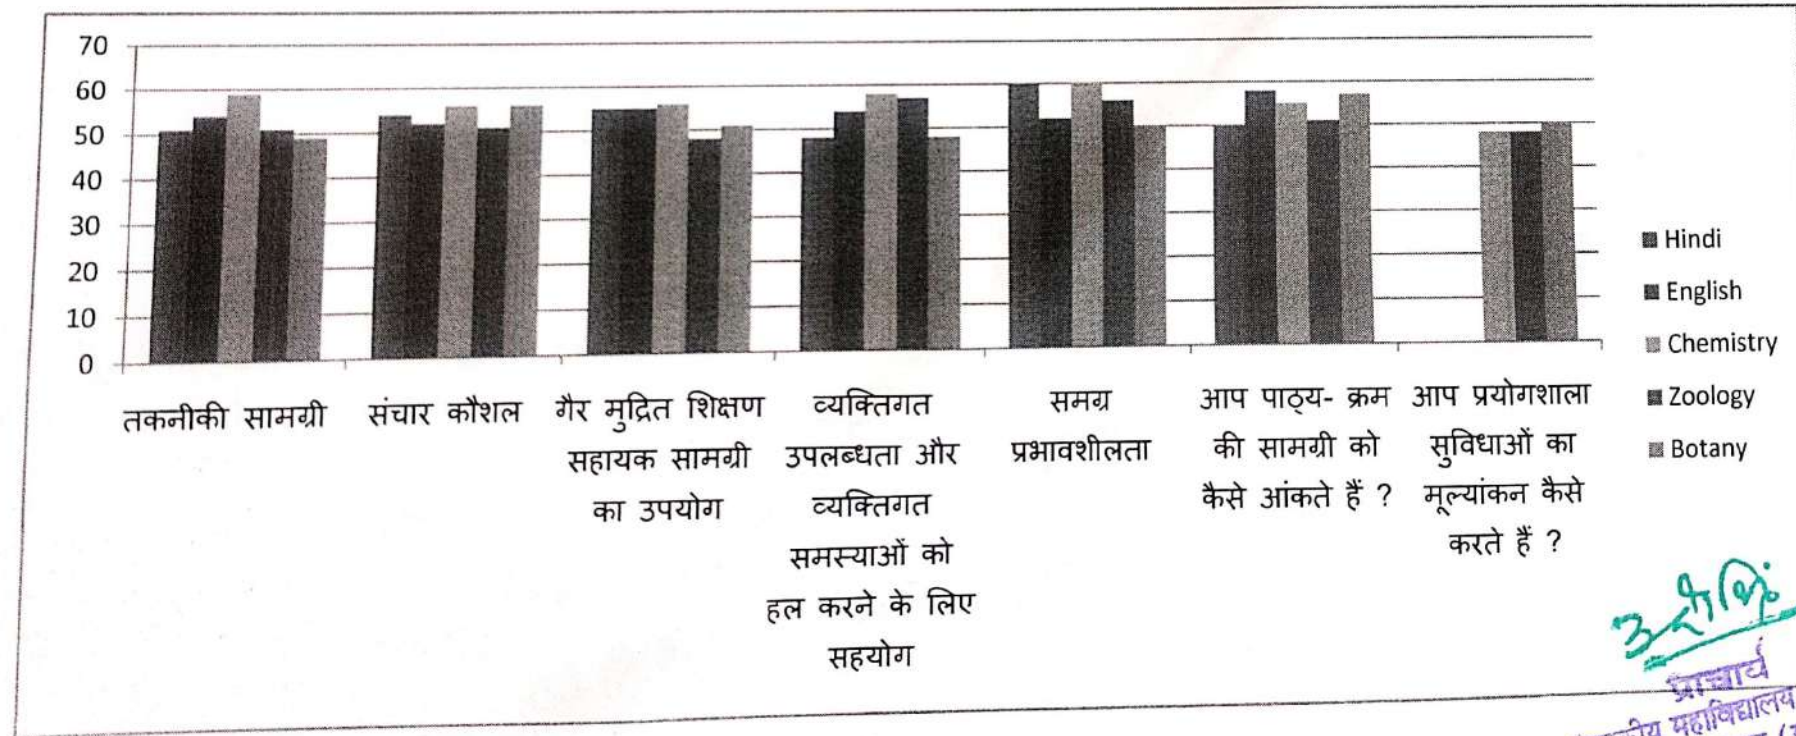 70
60
50
40
30
20
10
0
तकनीकी सामग्री
संचार कौशल
गैर मुद्रित शिक्षण
सहायक सामग्री
का उपयोग
व्यक्तिगत
उपलब्धता और
व्यक्तिगत
समस्याओं को
हल करने के लिए
सहयोग
समग्र
प्रभावशीलता
आप पाठ्य- क्रम
की सामग्री को
कैसे आंकते हैं ?
आप प्रयोगशाला
सुविधाओं का
मूल्यांकन कैसे
करते हैं ?
Hindi
English
Chemistry
Zoology
Botany
प्राचार्य
महाविद्यालय